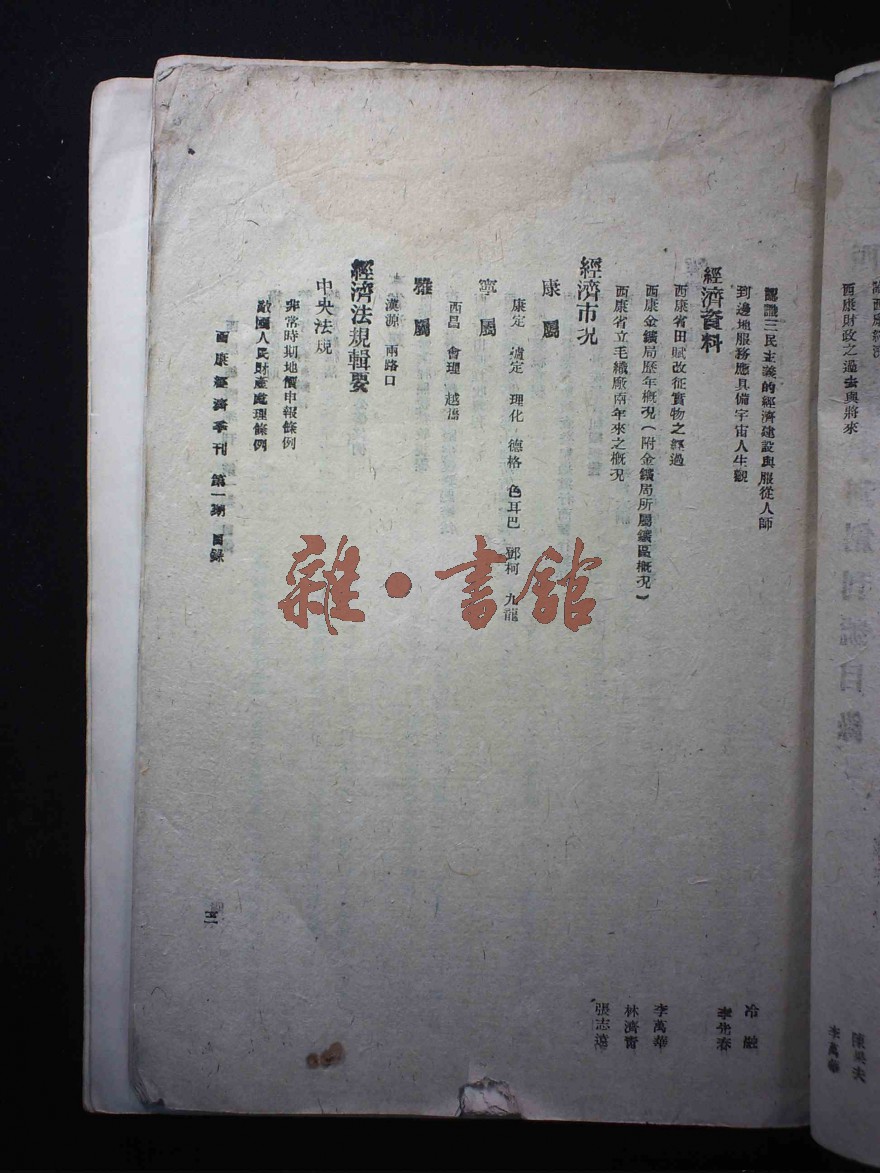 西康財政之過去與將來
陳果夫
李萬華
認識三民主義的經濟建設與服從人師
冷融
到邊地服務應具備宇宙人生觀
李先春
經濟資料
西康省田賦改征實物之經過
李萬華
西康金鑛局歷年概況(附金鑛局所屬鑛區概況)
林濟甯
西康省立毛織廠兩年來之概況
張志遠
經濟市況
康屬
康定 瀘定 理化 德格 色耳巴 鄧柯 九龍
寧屬
西昌 會理 越嶲
雅屬
漢源 兩路口
經濟法規輯要
中央法規
非常時期地價申報條例
敵國人民財產處理條例
西康經濟季刊 第一期 目錄
二
雜·書館